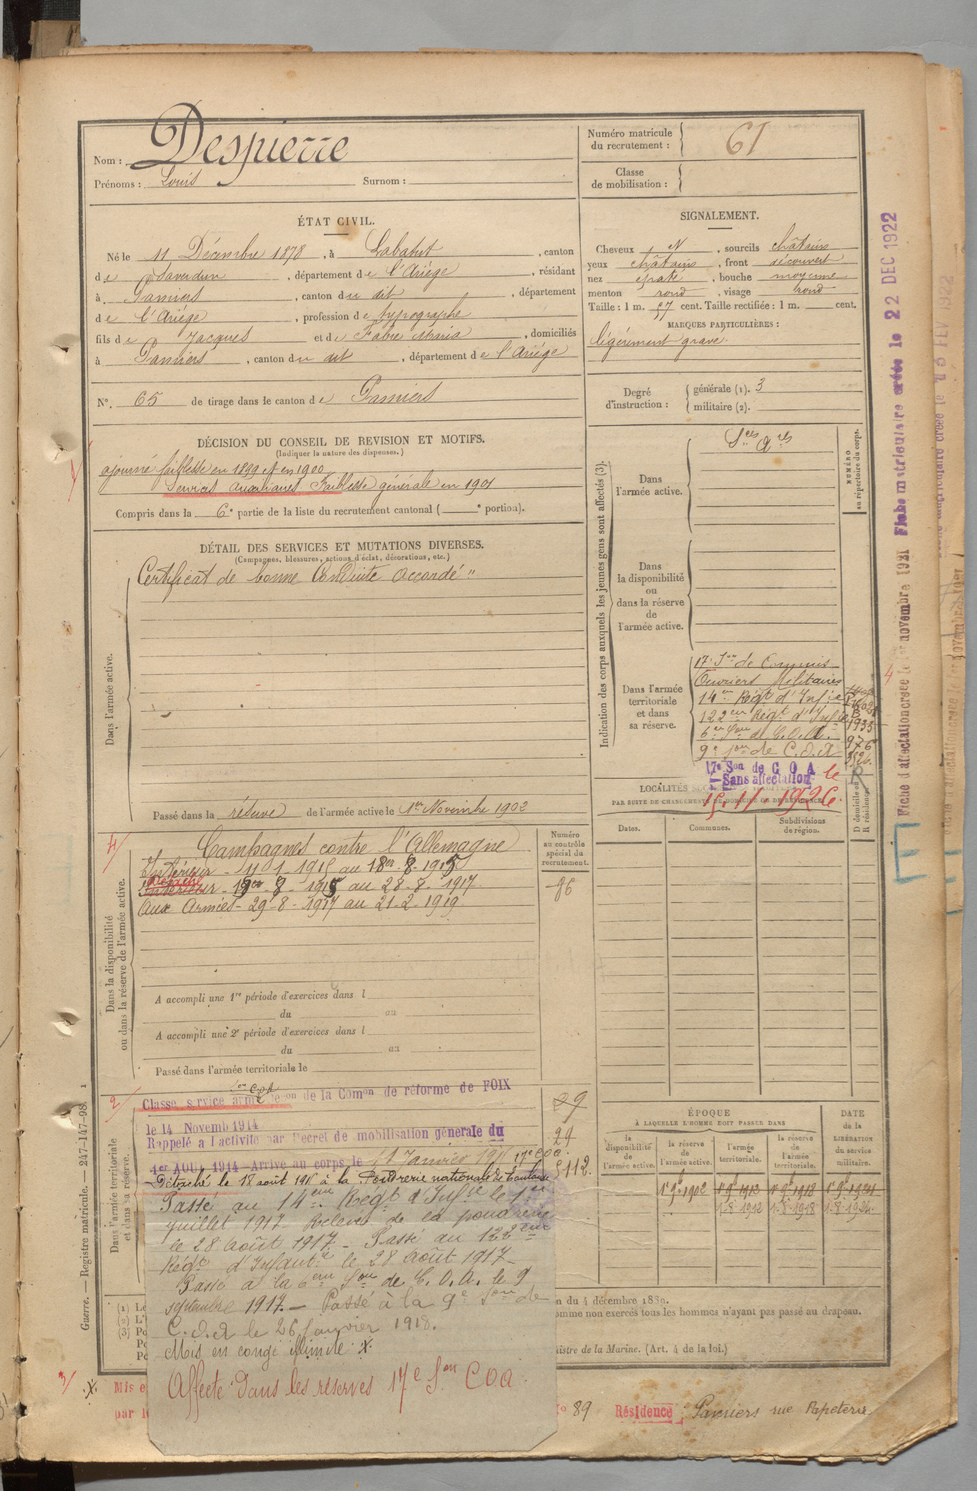 Nom : Despierre
Prénoms : Louis Surnom :
Numéro matricule du recrutement : 61
Classe de mobilisation :
ÉTAT CIVIL.
Né le 11 Décembre 1878, à Labatut, canton
de Saverdun, département de l'Ariège, résidant
à Pamiers, canton du dit, département
de l'Ariège, profession de typographe
fils de Jacques et de Fabre Maria, domiciliés
à Pamiers, canton du dit, département de l'Ariège
N°. 65 de tirage dans le canton de Pamiers
SIGNALEMENT.
Cheveux N, sourcils châtains
yeux châtains, front découvert
nez épaté, bouche moyenne
menton rond, visage rond
Taille : 1 m. 57 cent. Taille rectifiée : 1 m. cent.
MARQUES PARTICULIÈRES :
légèrement gravé
Degré d'instruction : générale (1). 3
militaire (2).
DÉCISION DU CONSEIL DE REVISION ET MOTIFS.
(Indiquer la nature des dispenses.)
ajourné faiblesse en 1899 et en 1900
Services Auxiliaires Faiblesse générale en 1901
Compris dans la 6e partie de la liste du recrutement cantonal ( e portion).
DÉTAIL DES SERVICES ET MUTATIONS DIVERSES.
(Campagnes, blessures, actions d'éclat, décorations, etc.)
Certificat de bonne Conduite accordé "
Dans l'armée active.
Passé dans la réserve de l'armée active le 1er Novembre 1902
Indication des corps auxquels les jeunes gens sont affectés (3).
NUMÉRO au répertoire du corps.
Dans l'armée active.
Sces Ares
Dans la disponibilité ou dans la réserve de l'armée active.
Dans l'armée territoriale et dans sa réserve.
17e Son de Commis
Ouvriers Militaires
14em Régt d'Infie
122em Régt d'Infie 1933
6em Son de C.O.A. 976
9e Son de C.O.A
17e Son de C O A
Sans affectation le
15.11.1926
LOCALITÉS
PAR SUITE DE CHANGEMENTS DE DOMICILE OU DE RÉSIDENCE
Dates. Communes. Subdivisions de région. D domicile ou R résidence.
Dans la disponibilité ou dans la réserve de l'armée active.
Campagnes contre l'Allemagne
Intérieur - 11-1-1915 au 18-8-1915
Intérieur - 19-8-1915 au 28-8-1917
Aux Armées - 29-8-1917 au 21-2-1919
Numéro au contrôle spécial du recrutement.
86
A accompli une 1re période d'exercices dans l
du au
A accompli une 2e période d'exercices dans l
du au
Passé dans l'armée territoriale le
Son COA
Classé service armé Déc on de la Comon de réforme de FOIX
le 14 Novemb 1914
Rappelé à l'activité par Décret de mobilisation générale du
1er AOUT 1914 - Arrivé au corps le 11 Janvier 1915 17e COA
Détaché le 18 août 1915 à la Poudrerie nationale de Toulouse
Passé au 14eme Régt d'Infie le 1er
juillet 1917. Relevé de la poudrerie
le 28 Août 1917 - Passé au 122eme
Régt d'Infanie le 28 Août 1917 -
Passé à la 6em Son de C.O.A. le 9
septembre 1917. - Passé à la 9e Son de
C.O.A le 26 Janvier 1918.
Mis en congé illimité .X.
Affecté dans les réserves 17e Son COA
29
24
5112
Dans l'armée territoriale et dans sa réserve.
ÉPOQUE
À LAQUELLE L'HOMME DOIT PASSER DANS
la disponibilité de l'armée active.
la réserve de l'armée active.
l'armée territoriale.
la réserve de l'armée territoriale.
DATE de la LIBÉRATION du service militaire.
1er 9bre 1902
1-8-1912 1-8-1918 1-8-1924
on du 4 décembre 1889.
omme non exercés tous les hommes n'ayant pas passé au drapeau.
nistre de la Marine. (Art. 4 de la loi.)
Mis e
par l
N° 89
Résidence : Pamiers rue Papeterie
Guerre. — Registre matricule. — 247-147-98.
Fiche d'affectation créée le 1er novembre 1921 Fiche matriculaire créée le 22 DEC 1922